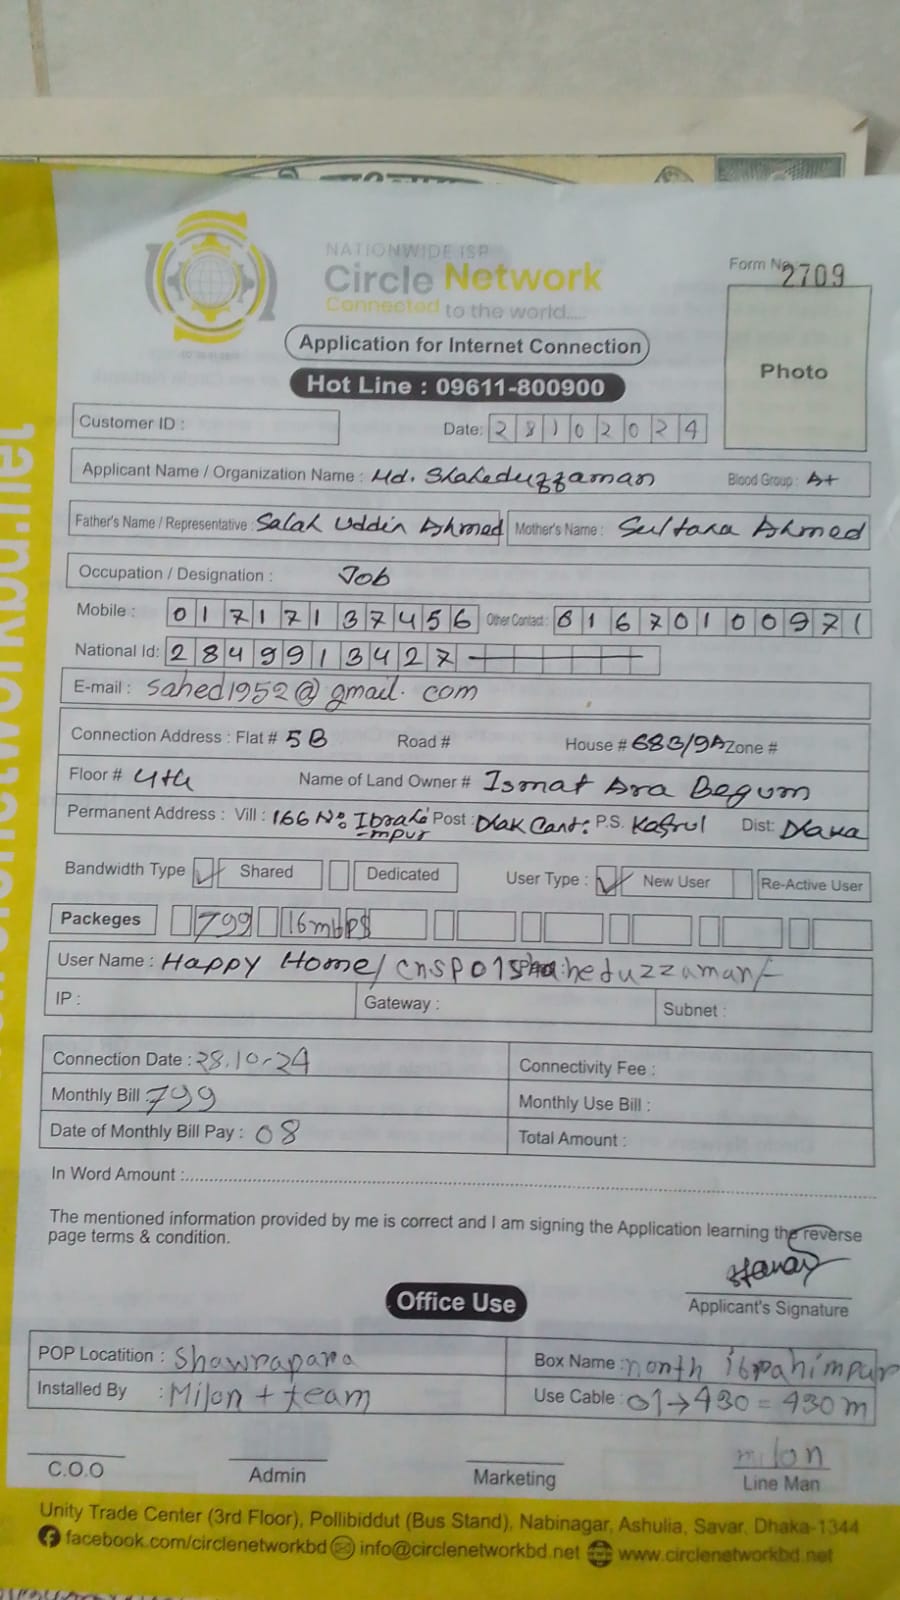 NATIONWIDE ISP
Circle Network
Connected to the world.....
Form No. 2709
Application for Internet Connection
Hot Line : 09611-800900
Photo
Customer ID :
Date: 28102024
Applicant Name / Organization Name : Md. Shaheduzzaman Blood Group : A+
Father's Name / Representative : Salah Uddin Ahmed Mother's Name : Sultana Ahmed
Occupation / Designation : Job
Mobile : 01717137456 Other Contact : 01670100971
National Id: 2849913427
E-mail : sahed1952@gmail.com
Connection Address : Flat # 5B Road # House # 683/9A Zone #
Floor # 4th Name of Land Owner # Ismat Ara Begum
Permanent Address : Vill : 166 No Ibrahi-mpur Post : Dhak Cant: P.S. Kafrul Dist: Dhaka
Bandwidth Type Shared Dedicated User Type : New User Re-Active User
Packeges 799 16mbps
User Name : Happy Home/cnsp01shaheduzzaman/-
IP : Gateway : Subnet :
Connection Date : 28.10-24 Connectivity Fee :
Monthly Bill : 799 Monthly Use Bill :
Date of Monthly Bill Pay : 08 Total Amount :
In Word Amount :
The mentioned information provided by me is correct and I am signing the Application learning the reverse
page terms & condition.
Applicant's Signature
Office Use
POP Locatition : Shawrapara Box Name : north ibrahimpur
Installed By : Milon + team Use Cable : 01→430 = 430m
milon
C.O.O Admin Marketing Line Man
Unity Trade Center (3rd Floor), Pollibiddut (Bus Stand), Nabinagar, Ashulia, Savar, Dhaka-1344
facebook.com/circlenetworkbd info@circlenetworkbd.net www.circlenetworkbd.net